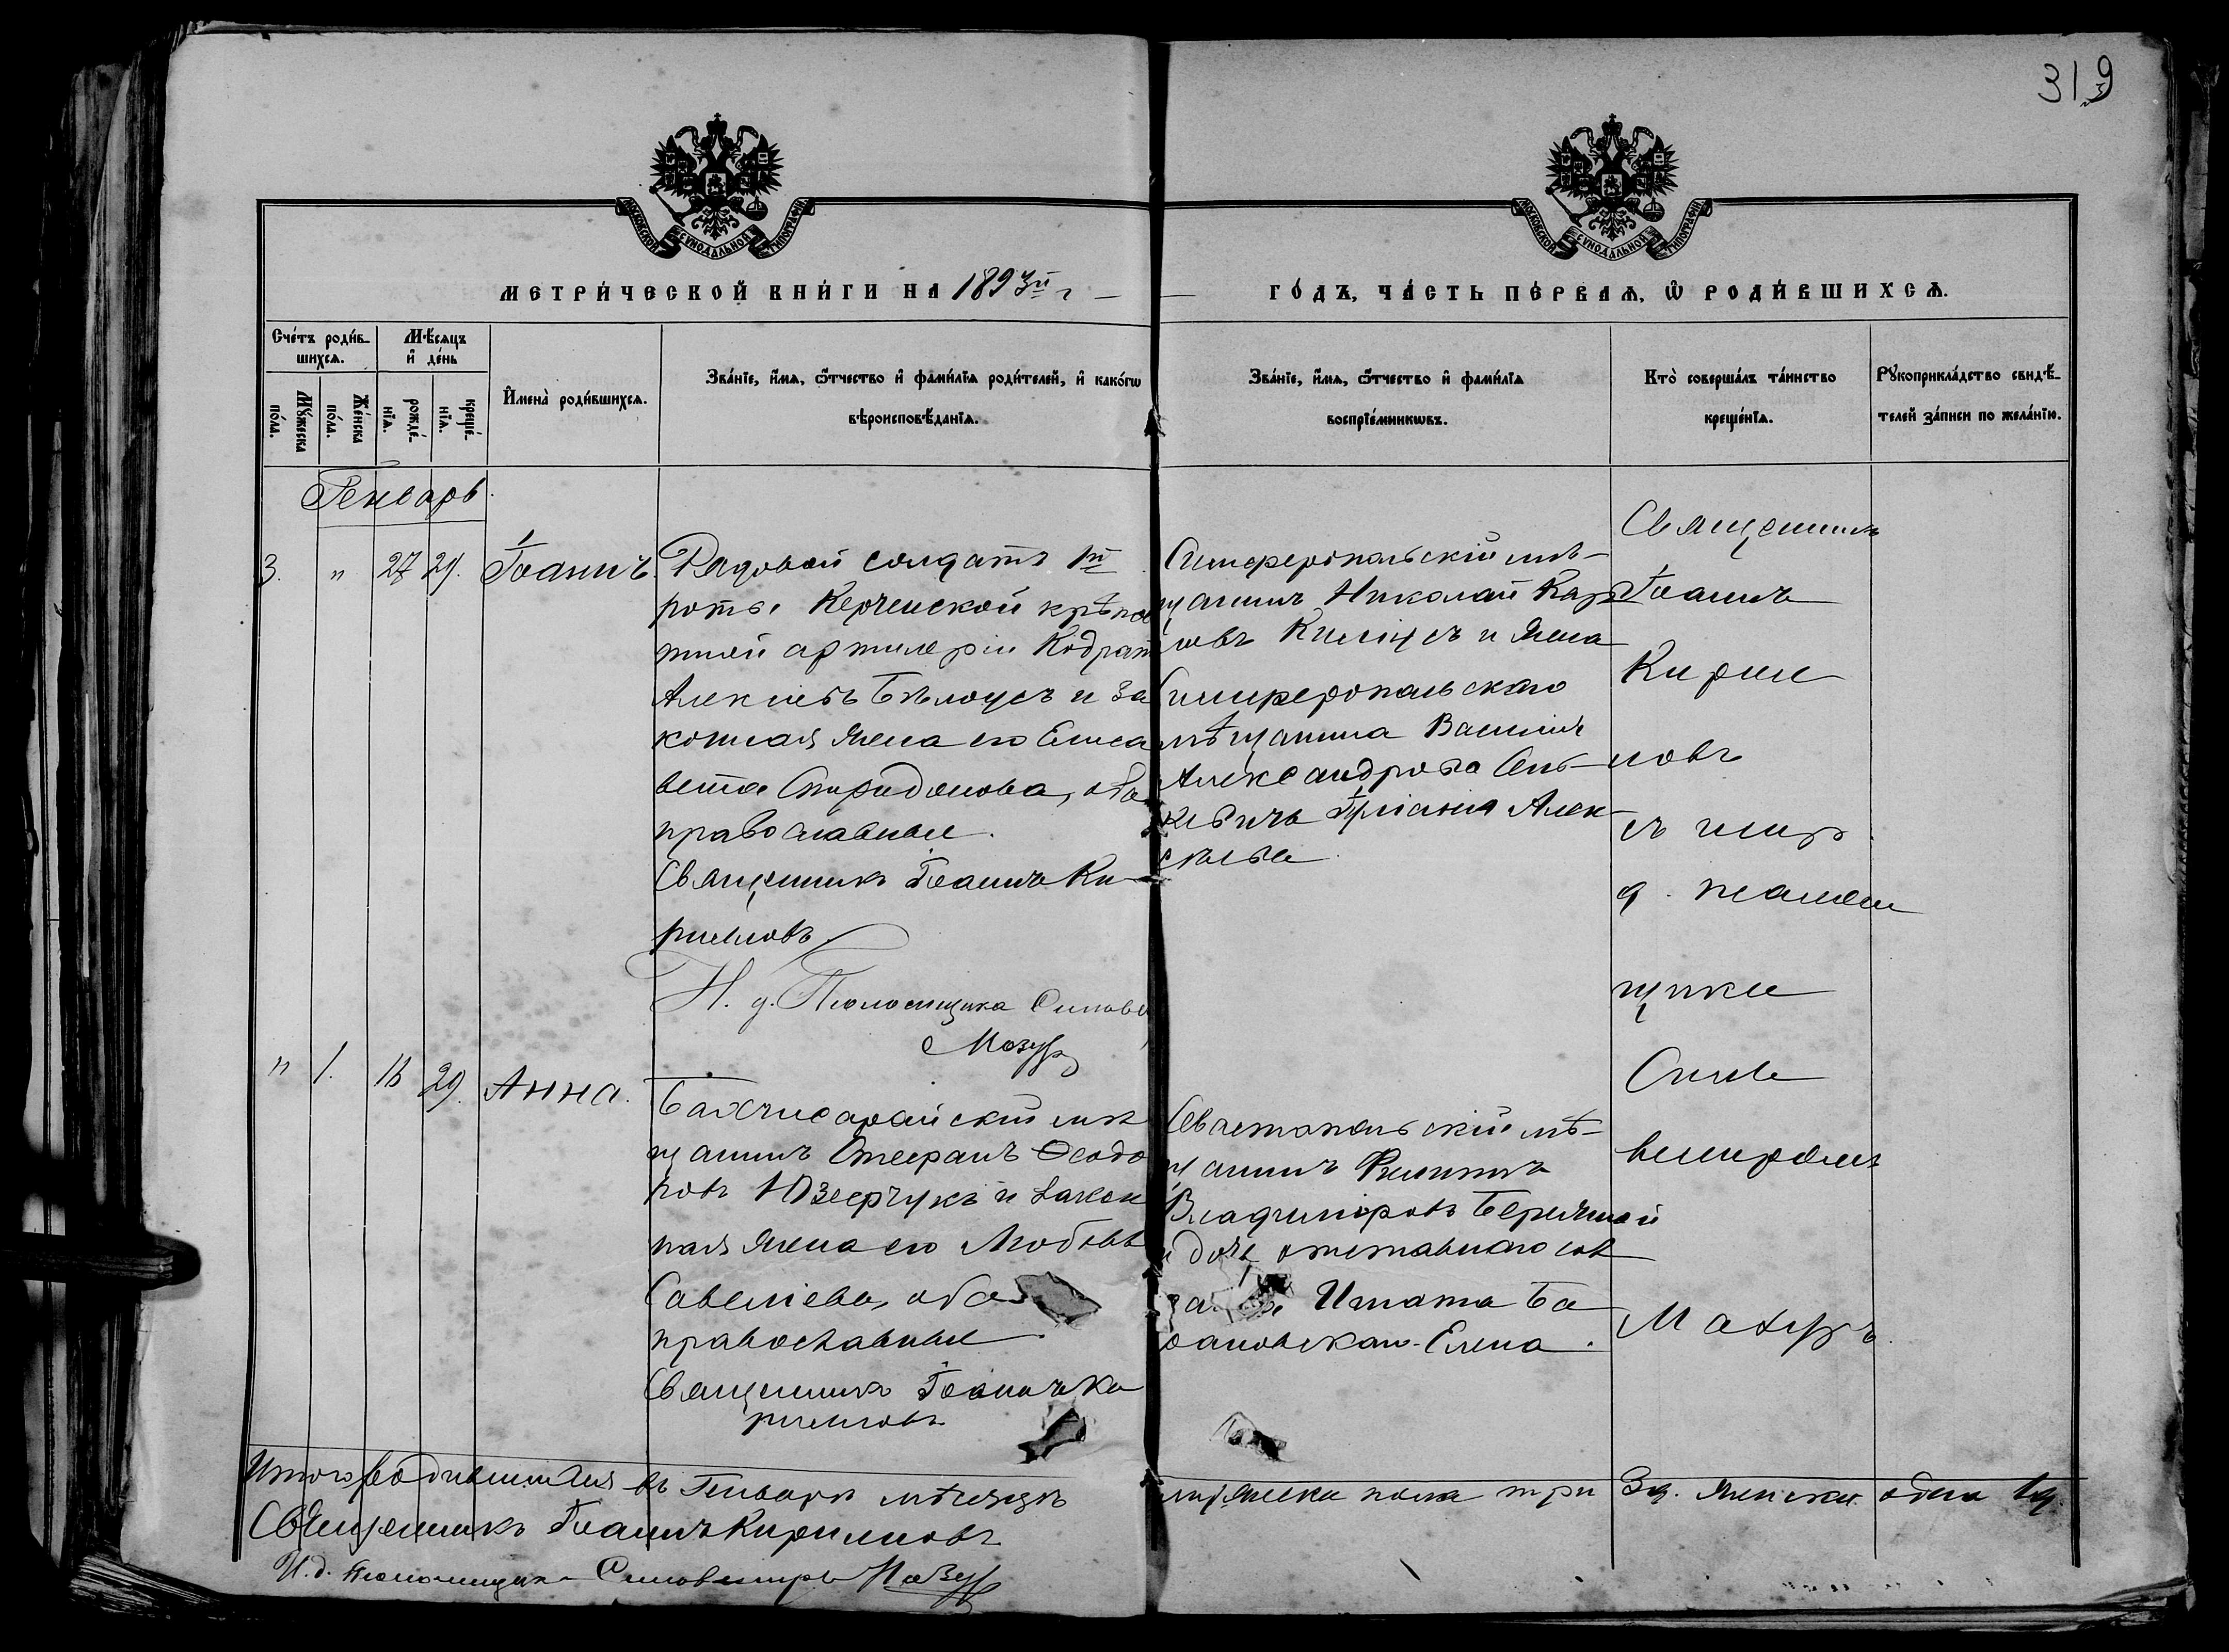 319
МОСКОВСКОЙ СУНОДАЛЬНОЙ ТИПОГРАФІИ
МОСКОВСКОЙ СУНОДАЛЬНОЙ ТИПОГРАФІИ
МЕТРИ́ЧЕСКОЙ КНИ́ГИ НА 1893й г
ГО́ДЪ, ЧА́СТЬ ПЕ́РВАѦ, Ѽ РОДИ́ВШИХСѦ.
Сче́тъ роди́в-
шихсѧ.
Мꙋ́жеска
по́ла.
Же́нска
по́ла.
Мѣ́сѧцъ
и҆ де́нь
рожде́-
нїѧ.
креще́-
нїѧ.
И҆мена̀ роди́вшихсѧ.
Зва́нїе, и҆́мѧ, ѻ҆́тчество и҆ фами́лїѧ роди́телей, и҆ како́гѡ
вѣроисповѣ́данїѧ.
Зва́нїе, и҆́мѧ, ѻ҆́тчество и҆ фами́лїѧ
воспрїе́мникѡвъ.
Кто̀ соверша́лъ та́инство
креще́нїѧ.
Рꙋкоприкла́дство свидѣ́-
телей за́писи по жела́нїю.
Генварь
3. " 27 29. Іоаннъ.
Рядовой солдатъ 1й
роты Керченской крѣпос
тной артилеріи Кодрат
Алексѣевъ Бѣлоусъ и за
конная жена его Елиса
вета Спиридонова, оба
православные.
Священникъ Іоаннъ Ки-
рилловъ
И. д. Псаломщика Силове
Мазуръ
Симферопольскій мѣ-
щанинъ Николай Кар
повъ и жена
Симферопольскаго
мѣщанина Василія
Александрова
Алек-
сѣева
Священникъ
Іоаннъ
Кирил
ловъ
съ испр.
д. псалом
щика
Силве
местромъ
Мазуръ
" 1. 16 29. Анна.
Бахчисарайскій мѣ
щанинъ Стефанъ Ѳеодо
ровъ Юзефчукъ и закон
ная жена его Любовь
Савелиева, оба
православные.
Священникъ Іоаннъ Ки
рилловъ
Севастопольскій мѣ-
щанинъ Филиппъ
Владиміровъ Бережной
и дочь отставного
Игната Ба
рановская Елена.
Итого родившихся въ Генваре мѣсяцѣ
мужеска пола три 3д. женска одна 1д.
Священникъ Іоаннъ Кирилловъ
И. д. Псаломщика Силовестръ Мазуръ